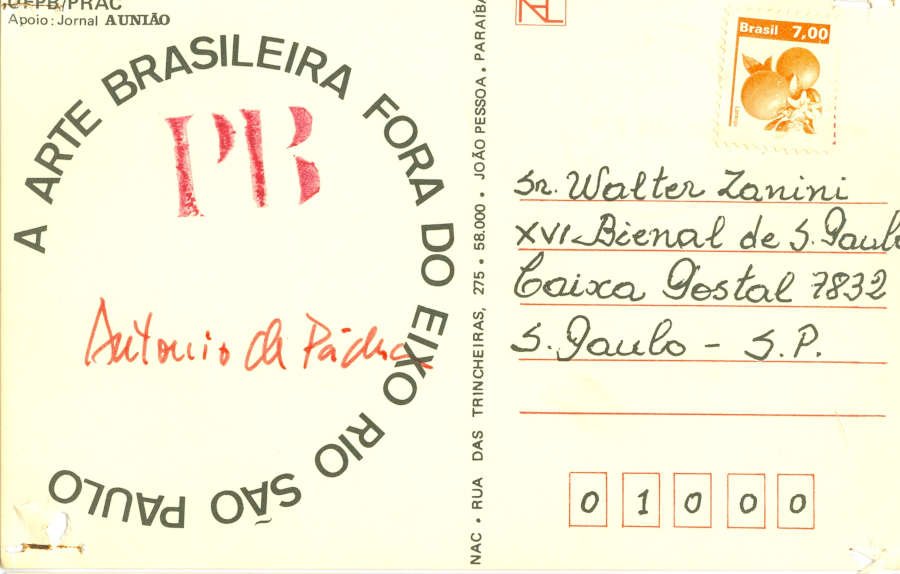 UFPB/PRAC
Apoio: Jornal A UNIÃO
A ARTE BRASILEIRA FORA DO EIXO RIO SÃO PAULO
PB
Antonio de Pádua
NAC • RUA DAS TRINCHEIRAS, 275 • 58.000 • JOÃO PESSOA • PARAÍBA
Brasil 7,00
Sr. Walter Zanini
XVI Bienal de S. Paulo
Caixa Postal 7832
S. Paulo - S.P.
01000